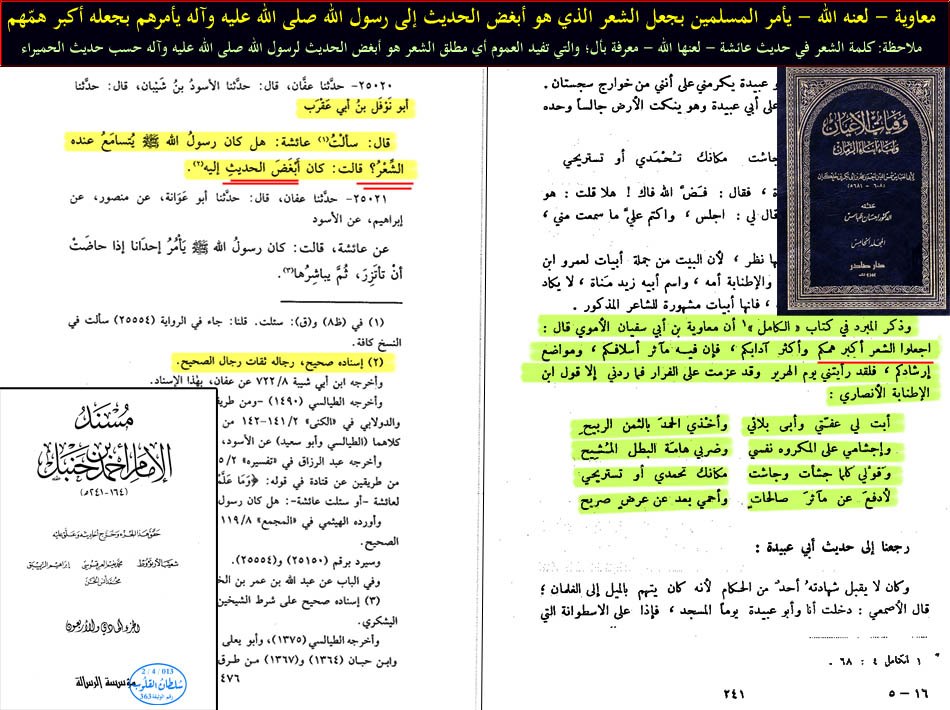 معاوية – لعنه الله – يأمر المسلمين بجعل الشعر الذي هو أبغض الحديث إلى رسول الله صلى الله عليه وآله يأمرهم بجعله أكبر همّهم
ملاحظة: كلمة الشعر في حديث عائشة – لعنها الله – معرفة بأل؛ والتي تفيد العموم أي مطلق الشعر هو أبغض الحديث لرسول الله صلى الله عليه وآله حسب حديث الحميراء
و عبيدة يكرمني على أنني من خوارج سجستان .
على أبي عبيدة وهو ينكت الأرض جالساً وحده
جاشت مكانك تُحْمَدي أو تستريحي
، فقال : فضَّ الله فاك ! هلا قلت : هو
قال لي : اجلس ، واكتم عليَّ ما سمعت مني ،
ها نظر ، لأن البيت من جملة أبيات لعمرو ابن
والإطنابة أمه ، واسم أبيه زيد مناة ، لا يكاد
، فإنها أبيات مشهورة للشاعر المذكور .
وذكر المبرد في كتاب « الكامل »١ أن معاوية بن أبي سفيان الأموي قال :
اجعلوا الشعر أكبر همكم وأكثر آدابكم ، فإن فيه مآثر أسلافكم ، ومواضع
إرشادكم ، فلقد رأيتني يوم الهرير وقد عزمت على الفرار فما ردني إلا قول ابن
الإطنابة الأنصاري :
أبت لي عفّتي وأبى بلائي وأخذي الحمدَ بالثمن الربيحِ
وإجشامي على المكروه نفسي وضربي هامة البطل المُشيحِ
وقولي كلما جشأت وجاشت مكانك تحمدي أو تستريحي
لأدفع عن مآثرَ صالحاتٍ وأحمي بعد عن عرضٍ صريح
رجعنا إلى حديث أبي عبيدة :
وكان لا يقبل شهادته أحد من الحكام لأنه كان يتهم بالميل إلى الغلمان ؛
قال الأصمعي : دخلت أنا وأبو عبيدة يوماً المسجد ، فإذا على الاسطوانة التي
١ الكامل ٤ : ٦٨ .
١٦ – ٥
٢٤١
وفيات الأعيان
وأنباء أبناء الزمان
حققه
الدكتور إحسان عباس
المجلد الخامس
دار صادر
٢٥٠٢٠- حدثنا عفَّان، قال: حدَّثنا الأسودُ بنُ شَيْبان، قال: حدَّثنا
أبو نَوْفَل بنُ أبي عَقْرَب
قال: سألتُ(١) عائشة: هل كان رسولُ الله ﷺ يُتسامَعُ عنده
الشِّعْرُ؟ قالت: كان أَبْغَضَ الحديثِ إليه(٢).
٢٥٠٢١- حدَّثنا عفان، قال: حدَّثنا أبو عَوَانة، عن منصور، عن
إبراهيم، عن الأسود
عن عائشة، قالت: كان رسولُ الله ﷺ يَأْمُرُ إحدَانا إذا حاضَتْ
أنْ تأتَزِرَ، ثُمَّ يباشِرُها(٣).
(١) في (ظ٨) و(ق): سئلت. قلنا: جاء في الرواية (٢٥٥٥٤) سألت في
النسخ كافة.
(٢) إسناده صحيح، رجاله ثقات رجال الصحيح.
وأخرجه ابن أبي شيبة ٧٢٢/٨ عن عفان، بهذا الإسناد.
وأخرجه الطيالسي (١٤٩٠) -ومن طريق
والدولابي في «الكنى» ١٤١/٢-١٤٢ من
كلاهما (الطيالسي وأبو سعيد) عن الأسود،
وأخرجه عبد الرزاق في «تفسيره» ٥/٢
من طريقين عن قتادة في قوله: ﴿وَمَا عَلَّمْ
لعائشة -أو سئلت عائشة-: هل كان رسول
وأورده الهيثمي في «المجمع» ١١٩/٨
الصحيح.
وسيرد برقم (٢٥١٥٠) و(٢٥٥٥٤).
وفي الباب عن عبد الله بن عمر بن الخ
(٣) إسناده صحيح على شرط الشيخين
اليشكري.
وأخرجه الطيالسي (١٣٧٥)، وأبو يعلى
وابن حبان (١٣٦٤) و(١٣٦٧) من طرق
٤٧٦
مسند
الإمام أحمد بن حنبل
(١٦٤-٢٤١هـ)
شعيب الأرنؤوط
الجزء الحادي والأربعون
مؤسسة الرسالة
2 / 4 / 013
سلطان القلوب
رقم الوثيقة 363